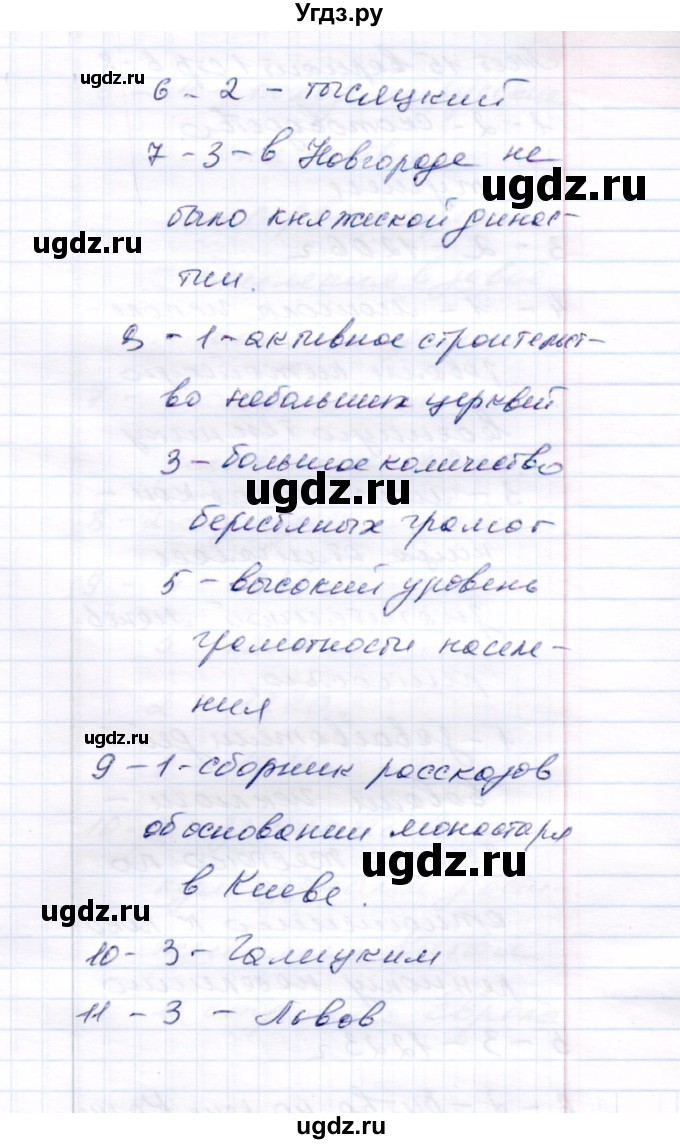 Угдз.ру
ugdz.ru
6 - 2 - тысяцкий
7 - 3 - в Новгороде не
ugdz.ru
было княжиской динас-
ugdz.ru
тии.
8 - 1 - активное строительст-
во небольших церквей
3 - большое количество
ugdz.ru
берестяных грамот
5 - высокий уровень
грамотности населе-
ния
ugdz.ru
9 - 1 - сборник рассказов
об основании монастаря
ugdz.ru
в Киеве.
ugdz.ru
10 - 3 - Галицким
11 - 3 - Львов
ugdz.ru
ugdz.ru